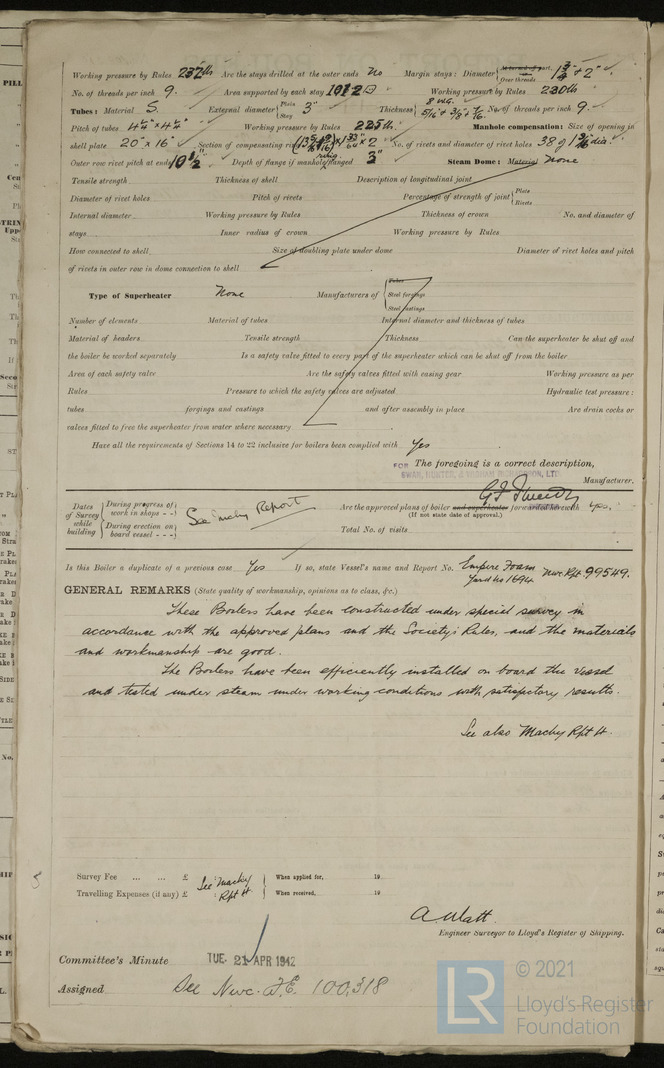 Working pressure by Rules 232 lb Are the stays drilled at the outer ends No Margin stays : Diameter { At turned off part, or Over threads 1 3/4" & 2"
No. of threads per inch 9. Area supported by each stay 101.2 Working pressure by Rules 230 lb
Tubes : Material S. External diameter { Plain Stay 3" Thickness { 8 WG. 5/16" & 3/8" & 7/16. No. of threads per inch 9.
Pitch of tubes 4 1/4" x 4 1/4" Working pressure by Rules 225 lb. Manhole compensation : Size of opening in
shell plate 20" x 16" Section of compensating ring No. of rivets and diameter of rivet holes 38 of 1 3/16" dia.
Outer row rivet pitch at ends 10 1/2" Depth of flange if manhole flanged 3" Steam Dome : Material None
Tensile strength Thickness of shell Description of longitudinal joint
Diameter of rivet holes Pitch of rivets Percentage of strength of joint { Plate Rivets
Internal diameter Working pressure by Rules Thickness of crown No. and diameter of
stays Inner radius of crown Working pressure by Rules
How connected to shell Size of doubling plate under dome Diameter of rivet holes and pitch
of rivets in outer row in dome connection to shell
Type of Superheater None Manufacturers of { Tubes Steel forgings Steel castings
Number of elements Material of tubes Internal diameter and thickness of tubes
Material of headers Tensile strength Thickness Can the superheater be shut off and
the boiler be worked separately Is a safety valve fitted to every part of the superheater which can be shut off from the boiler
Area of each safety valve Are the safety valves fitted with easing gear Working pressure as per
Rules Pressure to which the safety valves are adjusted Hydraulic test pressure :
tubes forgings and castings and after assembly in place Are drain cocks or
valves fitted to free the superheater from water where necessary
Have all the requirements of Sections 14 to 22 inclusive for boilers been complied with Yes
FOR The foregoing is a correct description,
SWAN, HUNTER, & WIGHAM RICHARDSON, LTD
Manufacturer.
Dates of Survey while building { During progress of work in shops - - } { During erection on board vessel - - - } See Machy Report
Are the approved plans of boiler and superheater forwarded herewith Yes.
(If not state date of approval.)
Total No. of visits
Is this Boiler a duplicate of a previous case Yes If so, state Vessel's name and Report No. Empire Foam Nwc. Rpt 99549.
Yard No 1694
GENERAL REMARKS (State quality of workmanship, opinions as to class, &c.)
These Boilers have been constructed under special survey in
accordance with the approved plans and the Society's Rules, and the materials
and workmanship are good.
The Boilers have been efficiently installed on board the vessel
and tested under steam under working conditions with satisfactory results.
See also Machy Rpt 4.
Survey Fee ... ... £ See Machy Rpt 4 When applied for, 19
Travelling Expenses (if any) £ When received, 19
A. Watt.
Engineer Surveyor to Lloyd's Register of Shipping.
Committee's Minute TUE. 21 APR 1942
Assigned See Nwc. F.E. 100,318
LR © 2021
Lloyd's Register
Foundation